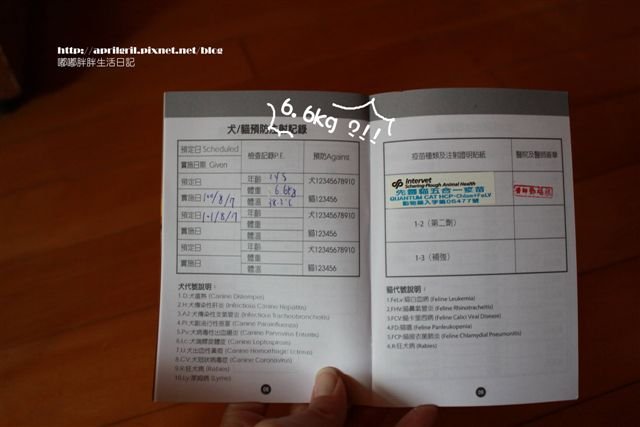 http://aprilgril.pixnet.net/blog
嘟嘟胖胖生活日記
6.6kg ?!!
犬/貓預防注射記錄
預定日 Scheduled
實施日期 Given
檢查記錄P.E.
預防Agains
預定日
實施日 100/8/7
年齡
體重 6.6kg
體溫
犬12345678910
貓123456
預定日 101/8/7
實施日
年齡
體重
體溫
犬12345678910
貓123456
預定日
實施日
年齡
體重
體溫
犬12345678910
貓123456
犬代號說明：
1.D:犬瘟熱 (Canine Distemper)
2.H:犬傳染性肝炎 (Infectious Canine Hepatitis)
3.A2:犬傳染性支氣管炎 (Infectious Tracheobronchitis)
4.Pi:犬副流行性感冒 (Canine Parainfluenza)
5.Pv:犬病毒性出血腸炎 (Canine Parvovirus Enteritis)
6.Lc:犬鉤端螺旋體症 (Canine Leptospirosis)
7.Li:犬出血性黃疸 (Canine Hemorrhage Icterus)
8.CV:犬冠狀病毒症 (Canine Coronavirus)
9.R:狂犬病 (Rabies)
10.Ly:萊姆病 (Lyme)
08
疫苗種類及注射證明貼紙
醫院及醫師簽章
Intervet
Schering-Plough Animal Health
先靈貓五合一疫苗
QUANTUM CAT HCP-Chlam+FeLV
動物藥入字第06477號
1-2（第二劑）
1-3（補強）
貓代號說明：
1.FeLv:貓白血病 (Feline Leukemia)
2.FHV:貓鼻氣管炎 (Feline Rhinotracheitis)
3.FCV:貓卡里西病 (Feline Calici Viral Disease)
4.FD:貓瘟 (Feline Panleukopenia)
5.FCP:貓披衣菌肺炎 (Feline Chlamydial Pneumonitis)
6.R:狂犬病 (Rabies)
09